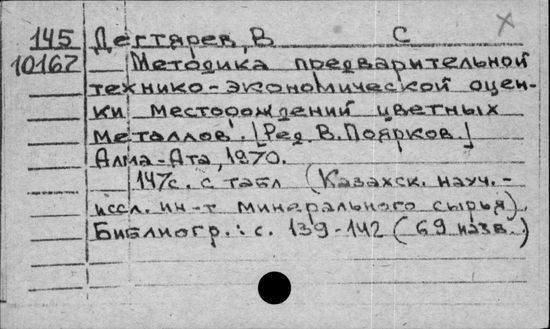 145 Дегтярев, В С
10167 Методика предварительной
технико-экономической оцен-
ки месторождений цветных
металлов. [Ред. В. Поярков.]
Алма-Ата, 1970.
147с. с табл (Казахск. науч.-
иссл. ин-т минерального сырья).
Библиогр.: с. 139-142 (69 назв.)